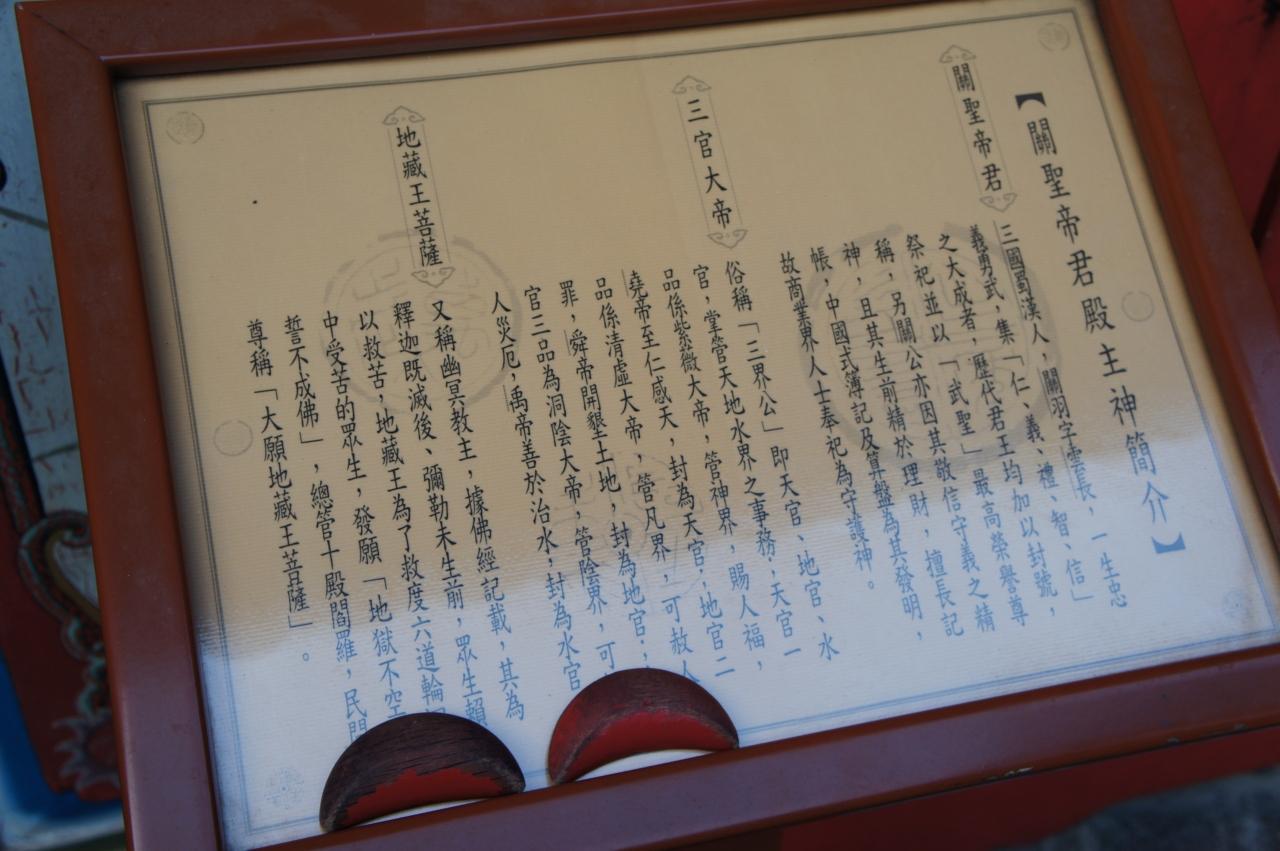 【關聖帝君殿主神簡介】
關聖帝君
三國蜀漢人，關羽字雲長，一生忠
義勇武，集「仁、義、禮、智、信」
之大成者，歷代君王均加以封號，
祭祀並以「武聖」最高榮譽尊
稱，另關公亦因其敬信守義之精
神，且其生前精於理財，擅長記
帳，中國式簿記及算盤為其發明，
故商業界人士奉祀為守護神。
三官大帝
俗稱「三界公」即天官、地官、水
官，掌管天地水界之事務，天官一
品係紫薇大帝，管神界，賜人福，
堯帝至仁感天，封為天官；地官二
品係清虛大帝，管凡界，可赦人
罪，舜帝開墾土地，封為地官；
官三品為洞陰大帝，管陰界，可
人災厄，禹帝善於治水，封為水官
地藏王菩薩
又稱幽冥教主，據佛經記載，其為
釋迦既滅後、彌勒未生前，眾生賴
以救苦，地藏王為了救度六道輪
中受苦的眾生，發願「地獄不空
誓不成佛」，總管十殿閻羅，民間
尊稱「大願地藏王菩薩」。